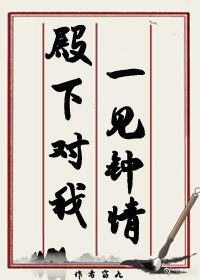 殿下对我
一见钟情
作者 九